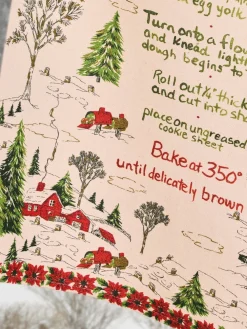 egg yolk
Turn onto a flo
and knead lightl
dough begins to
Roll out ¼" thic
and cut into sha
place on ungreased
cookie sheet
Bake at 350°
until delicately brown